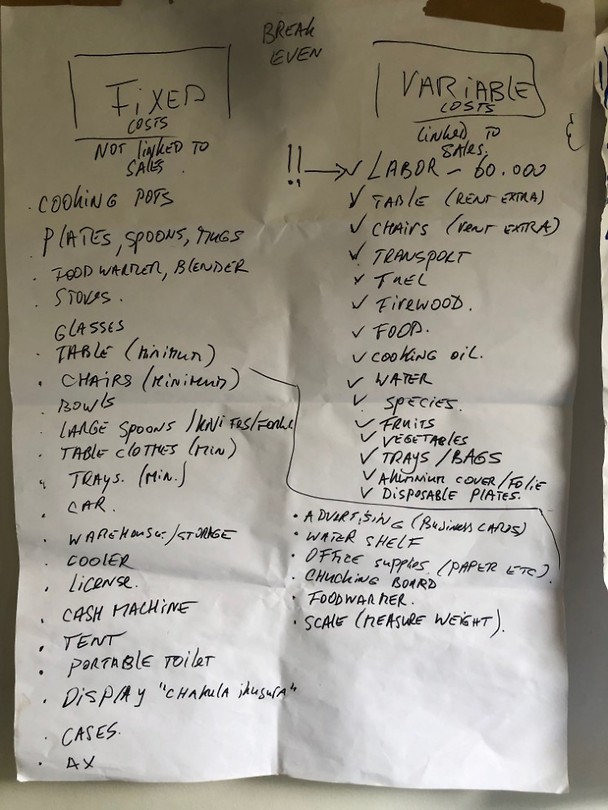 BREAK
EVEN
FIXED
COSTS
NOT LINKED TO
SALES.
COOKING POTS
PLATES, SPOONS, MUGS
FOOD WARMER, BLENDER
STOVES.
GLASSES
TABLE (MINIMUM)
CHAIRS (MINIMUM)
BOWLS
LARGE SPOONS /KNIFES/FORKS
TABLE CLOTHES (MIN)
TRAYS. (MIN.)
CAR.
WAREHOUSE/STORAGE
COOLER
LICENSE.
CASH MACHINE
TENT
PORTABLE TOILET
DISPLAY "CHAKULA
CASES.
AX
VARIABLE
COSTS
LINKED TO
SALES.
!! → ✓ LABOR - 60.000
✓ TABLE (RENT EXTRA)
✓ CHAIRS (RENT EXTRA)
✓ TRANSPORT
✓ FUEL
✓ FIREWOOD.
✓ FOOD.
✓ COOKING OIL.
✓ WATER
✓ SPECIES.
✓ FRUITS
✓ VEGETABLES
✓ TRAYS /BAGS
✓ ALUMINIUM COVER/FOLIE
✓ DISPOSABLE PLATES.
• ADVERTISING (BUSINESS CARDS)
• WATER SHELF
• OFFICE SUPPLIES (PAPER ETC).
• CHUCKING BOARD
• FOODWARMER.
• SCALE (MEASURE WEIGHT).